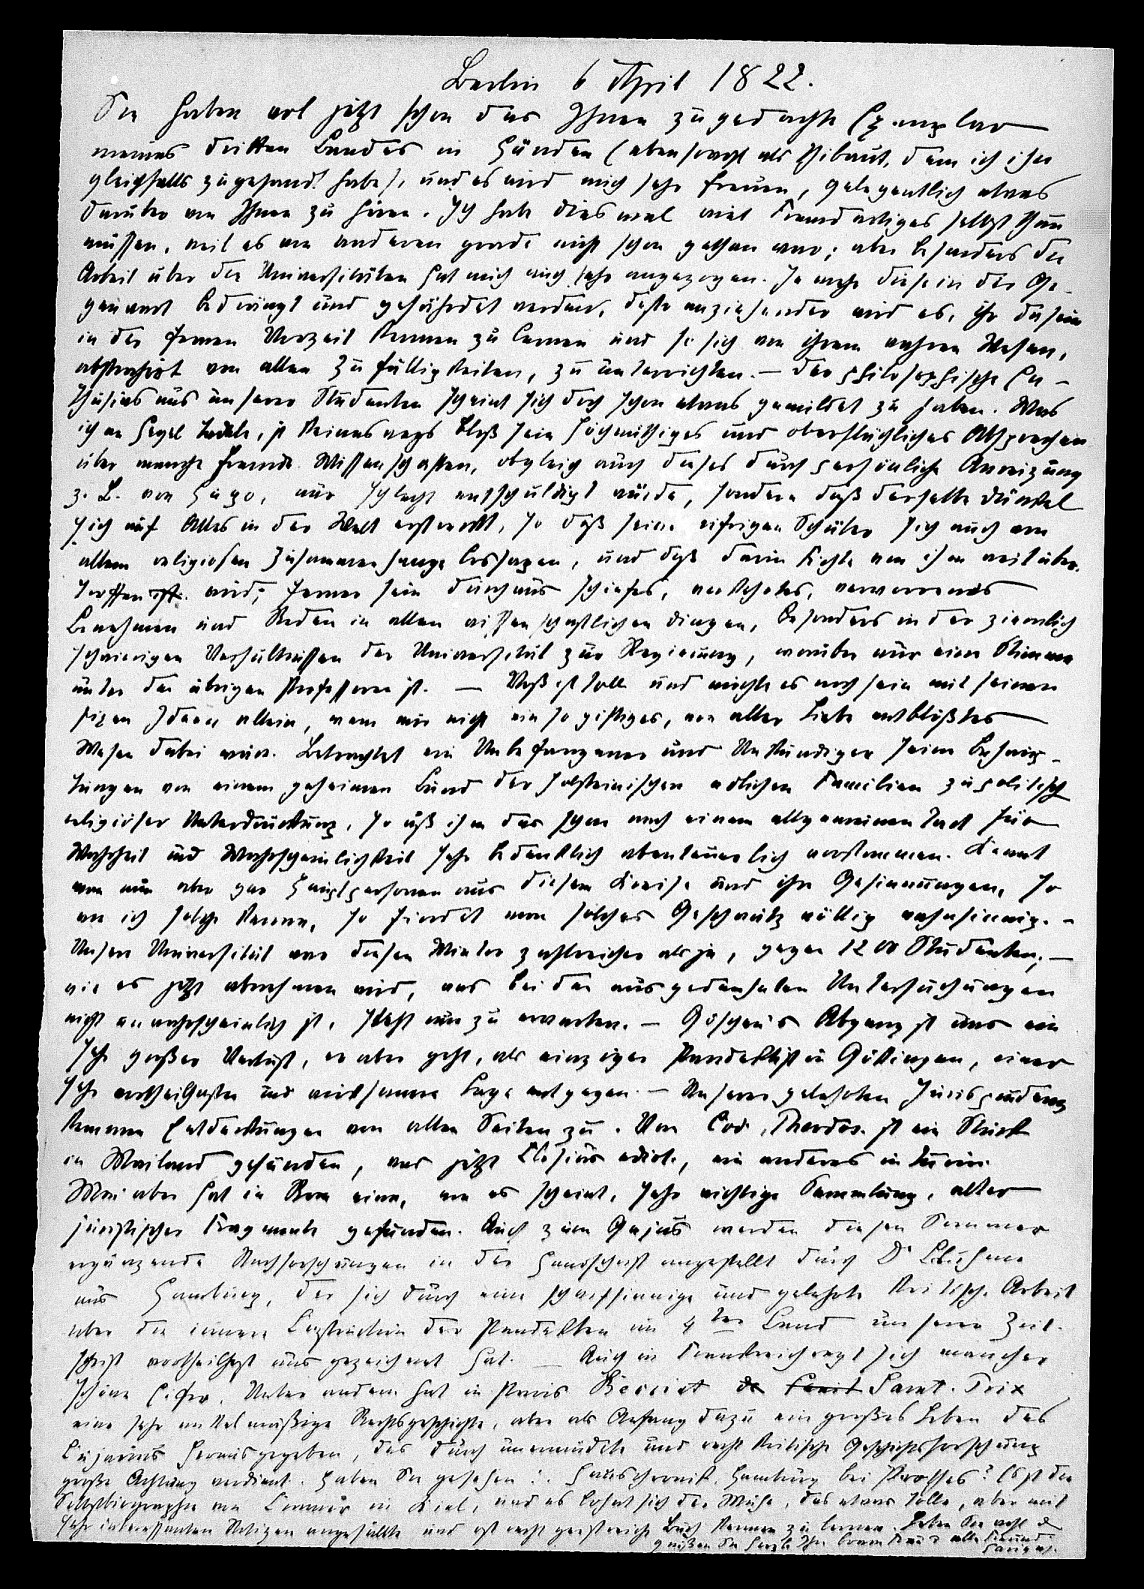 Berlin 6 April 1822.
Sie haben wol jetzt schon das Ihnen zugedachte Exemplar
meines dritten Bandes in Händen (ebensowohl als Thibaut, dem ich ihn
gleichfalls zugesandt habe), und es wird mich sehr freuen, gelegentlich etwas
darüber von Ihnen zu hören. Ich habe diesmal viel Fremdartiges selbst thun
müssen, weil es von anderen grade nicht schon gethan war; aber besonders die
Arbeit über die Universitäten hat mich auch sehr angezogen. Je mehr diese in der Ge-
genwart bedrängt und gefährdet werden, desto anziehender wird es, ihr Dasein
in der fernen Vorzeit kennen zu lernen und so sich von ihrem wahren Wesen,
abstrahirt von allen Zufälligkeiten, zu unterrichten. — Der philosophische En-
thusiasmus unserer Studenten scheint sich doch schon etwas gemildet zu haben. Was
ich an Hegel tadele, ist keineswegs blos sein hochmüthiges und oberflächliches Absprechen
über manche fremde Wissenschaften, obgleich auch dieses durch persönliche Anreizung
z. B. von Hugo, nur schlecht entschuldigt würde, sondern daß derselbe Dünkel
sich auf Alles in der Welt erstreckt, so daß seine eifrigen Schüler sich auch von
allem religiosen Zusammenhange lossagen, und daß darin Fichte von ihm weit über-
troffen wird; ferner sein durchaus schiefes, verkehrtes, verworrenes
Benehmen und Reden in allen nicht wissenschaftlichen Dingen, besonders in der ziemlich
schwierigen Verhältnissen der Universität zur Regierung, worüber nur eine Stimme
unter den übrigen Professoren ist. — Voß ist toll und möchte es noch sein mit seinen
fixen Ideen allein, wenn nur nicht ein so giftiges, von aller Liebe entblößtes
Wesen dabei wäre. Betrachtet ein Unbefangener und Unkundiger seine Behaup-
tungen von einem geheimen Bund der holsteinischen adlichen Familien zu politisch
religiöser Unterdrückung, so muß ihm das schon nach einem allgemeinen Tact für
Wahrheit und Wahrscheinlichkeit sehr bedenklich abenteuerlich vorkommen. Kennt
man nun aber gar Hauptpersonen aus diesem Kreise und ihre Gesinnungen, so
wie ich solche kenne, so findet man solches Geschwätz völlig wahnsinnig. —
Unsere Universität war diesen Winter zahlreicher als je, gegen 1200 Studenten; —
wie es jetzt abnehmen wird, was bei den ausgedehnten Untersuchungen
nicht unwahrscheinlich ist, steht nun zu erwarten. — Göschen's Abgang ist uns ein
sehr großer Verlust, er aber geht, als einziger Pandektist in Göttingen, einer
sehr vortheilhaften und wirksamen Lage entgegen. — Unserer gelehrten Jurisprudenz
kommen Entdeckungen von allen Seiten zu. Vom Cod. Theodos. ist ein Stück
in Mailand gefunden, was jetzt Clossius edirt, ein anderes in Turin.
Mai aber hat in Rom eine, wie es scheint, sehr wichtige Sammlung alter
juristischer Fragmente gefunden. Auch zum Gajus werden diesen Sommer
ergänzende Nachforschungen in der Handschrift angestellt durch Dr Bluhme
aus Hamburg, der sich durch eine scharfsinnige und gelehrte kritische Arbeit
über die innere Construction der Pandekten im 4ten Band unserer Zeit-
schrift vortheilhaft ausgezeichnet hat. — Auch in Frankreich regt sich mancher
schöne Eifer. Unter andern hat in Paris Berriat Saint-Prix
eine sehr mittelmäßige Rechtsgeschichte, aber als Anhang dazu ein großes Leben des
Cujacius herausgegeben, das durch unermüdete und recht kritische Geschichtsforschung
große Achtung verdient. Haben Sie gesehen: Hauschronik, Hamburg bei Perthes? Es ist die
Selbstbiographie von Cramer in Kiel, und es lohnt sich der Mühe, das etwas tolle, aber mit
sehr interessanten Notizen angefüllte und oft recht geistreiche Buch kennen zu lernen. Leben Sie wohl
grüßen Sie herzlich Ihre liebe Frau alle Freunde
Savigny.